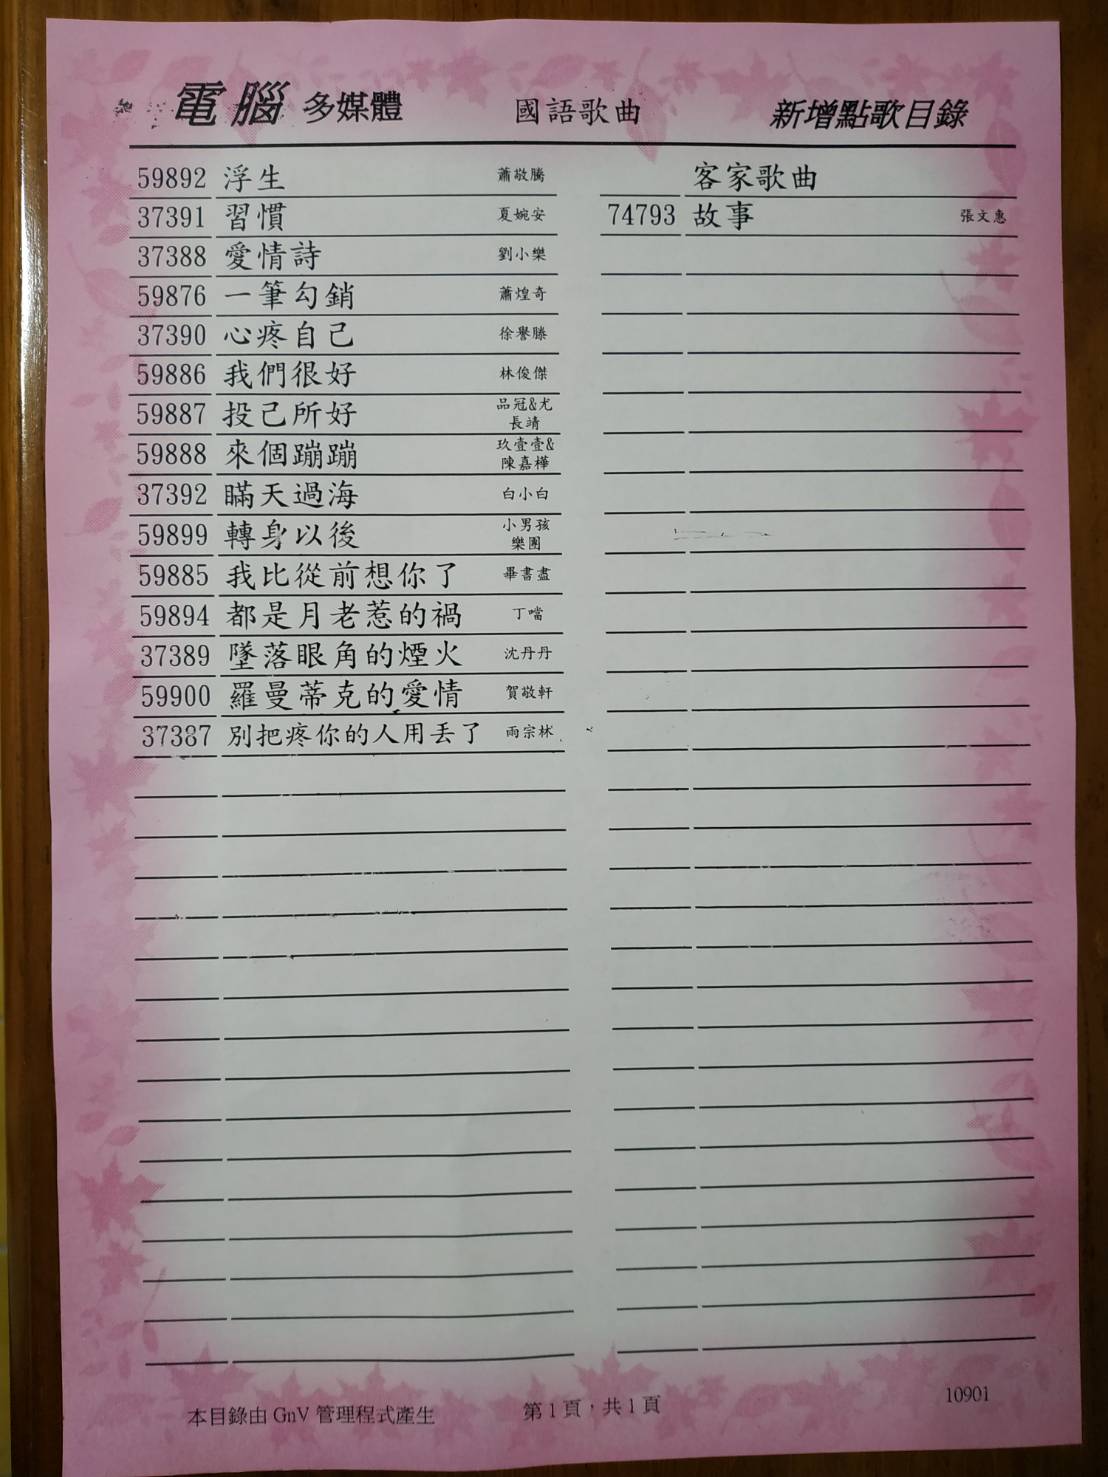 電腦 多媒體 國語歌曲 新增點歌目錄
59892 浮生 蕭敬騰
37391 習慣 夏婉安
37388 愛情詩 劉小樂
59876 一筆勾銷 蕭煌奇
37390 心疼自己 徐譽滕
59886 我們很好 林俊傑
59887 投己所好 品冠&尤
長靖
59888 來個蹦蹦 玖壹壹&
陳嘉樺
37392 瞞天過海 白小白
59899 轉身以後 小男孩
樂團
59885 我比從前想你了 畢書盡
59894 都是月老惹的禍 丁噹
37389 墜落眼角的煙火 沈丹丹
59900 羅曼蒂克的愛情 賀敬軒
37387 別把疼你的人用丟了 雨宗林
客家歌曲
74793 故事 張文惠
本目錄由 GnV 管理程式產生 第 1 頁，共 1 頁 10901